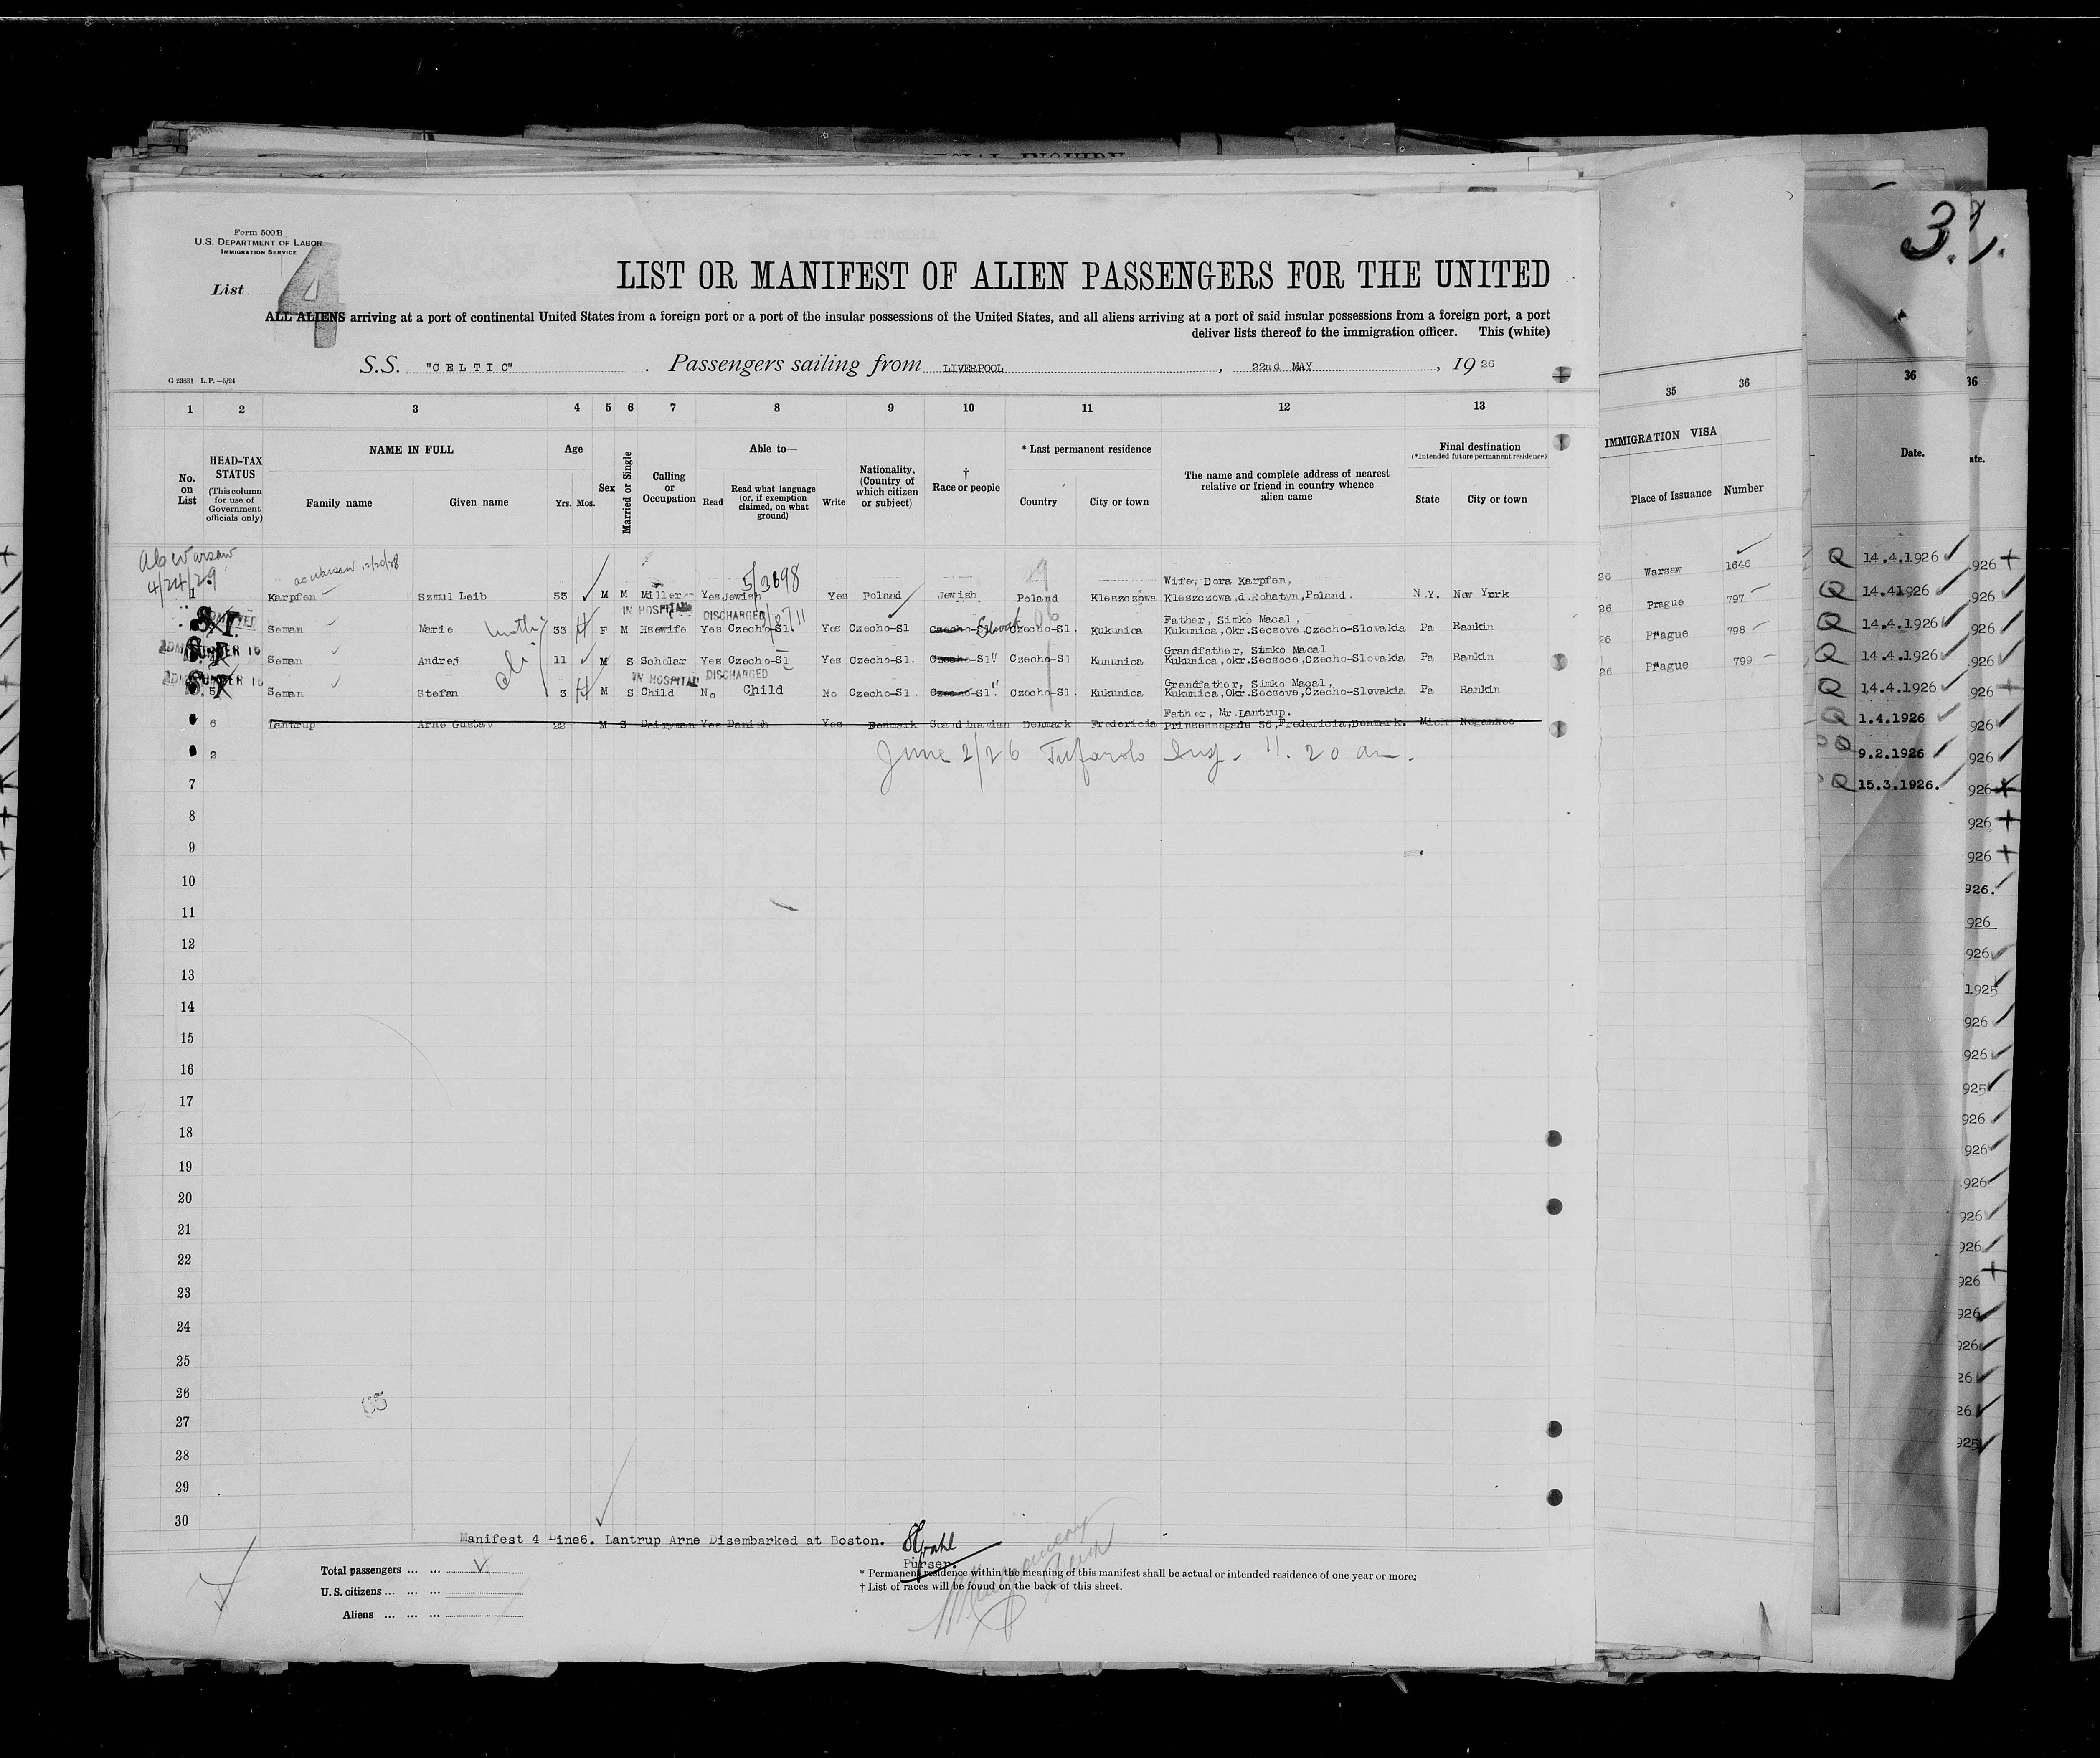 Form 500B
U.S. DEPARTMENT OF LABOR
IMMIGRATION SERVICE
List 4
LIST OR MANIFEST OF ALIEN PASSENGERS FOR THE UNITED
ALL ALIENS arriving at a port of continental United States from a foreign port or a port of the insular possessions of the United States, and all aliens arriving at a port of said insular possessions from a foreign port, a port
deliver lists thereof to the immigration officer. This (white)
S.S. "CELTIC" . Passengers sailing from LIVERPOOL , 22nd MAY , 19 26
G 23881 L.P.—5/24
1 2 3 4 5 6 7 8 9 10 11 12 13
No. on List
HEAD-TAX STATUS
(This column for use of Government officials only)
NAME IN FULL
Family name Given name
Age
Yrs. Mos.
Sex
Married or Single
Calling or Occupation
Able to—
Read
Read what language (or, if exemption claimed, on what ground)
Write
Nationality, (Country of which citizen or subject)
† Race or people
* Last permanent residence
Country City or town
The name and complete address of nearest relative or friend in country whence alien came
Final destination
(*Intended future permanent residence)
State City or town
35 36
IMMIGRATION VISA
Place of Issuance Number
36
Date.
3.
ab Warsaw
4/24/29
5/3698
Wife, Dora Karpfen,
1 Karpfen Szmul Leib 53 M M Miller Yes Jewish Yes Poland Jewish Poland Kleszczowa Kleszczowa,d.Rohatyn,Poland. N.Y. New York
IN HOSPITAL DISCHARGED
Father, Simko Macal,
S.I. Seman Marie 33 F M Hsewife Yes Czecho-Sl. Yes Czecho-Sl Czecho-Sl Slovak Czecho-Sl. Kukunica Kukunica,Okr.Secsove,Czecho-Slovakia Pa Rankin
Grandfather, Simko Macal
S.I. Seman Andrej 11 M S Scholar Yes Czecho-Sl Yes Czecho-Sl. Czecho-Sl " Czecho-Sl Kununica Kukunica,okr.Secsoce,Czecho-Slovakia Pa Rankin
IN HOSPITAL DISCHARGED
Grandfather, Simko Macal,
S.I. 5 Seman Stefan 3 M S Child No Child No Czecho-Sl. Czecho-Sl " Czecho-Sl. Kukunica Kukunica,Okr.Secsove,Czecho-Slovakia Pa Rankin
Father, Mr.Lantrup.
6 Lantrup Arne Gustav 22 M S Dairyman Yes Danish Yes Denmark Scandinavian Denmark Fredericia Prinsessegade 56,Fredericia,Denmark. Mich Negaunee
2 June 2/26 11.20 am.
7
8
9
10
11
12
13
14
15
16
17
18
19
20
21
22
23
24
25
26
27
28
29
30
26 Warsaw 1646
26 Prague 797
26 Prague 798
26 Prague 799
Q 14.4.1926
Q 14.41926
Q 14.4.1926
Q 14.4.1926
Q 14.4.1926
Q 1.4.1926
Q 9.2.1926
Q 15.3.1926.
Manifest 4 Line6. Lantrup Arne Disembarked at Boston.
Purser.
Total passengers ... ...
U.S. citizens ... ... ...
Aliens ... ... ...
* Permanent residence within the meaning of this manifest shall be actual or intended residence of one year or more.
† List of races will be found on the back of this sheet.